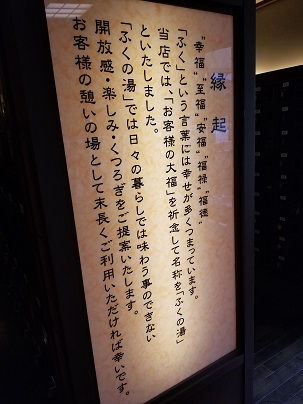 縁起
“幸福”“至福”“安福”“福禄”“福徳”
「ふく」という言葉には幸せが多くつまっています。
当店では、「お客様の大福」を祈念して名称を「ふくの湯」
といたしました。
「ふくの湯」では日々の暮らしでは味わう事のできない
開放感・楽しみ・くつろぎをご提案いたします。
お客様の憩いの場として末長くご利用いただければ幸いです。